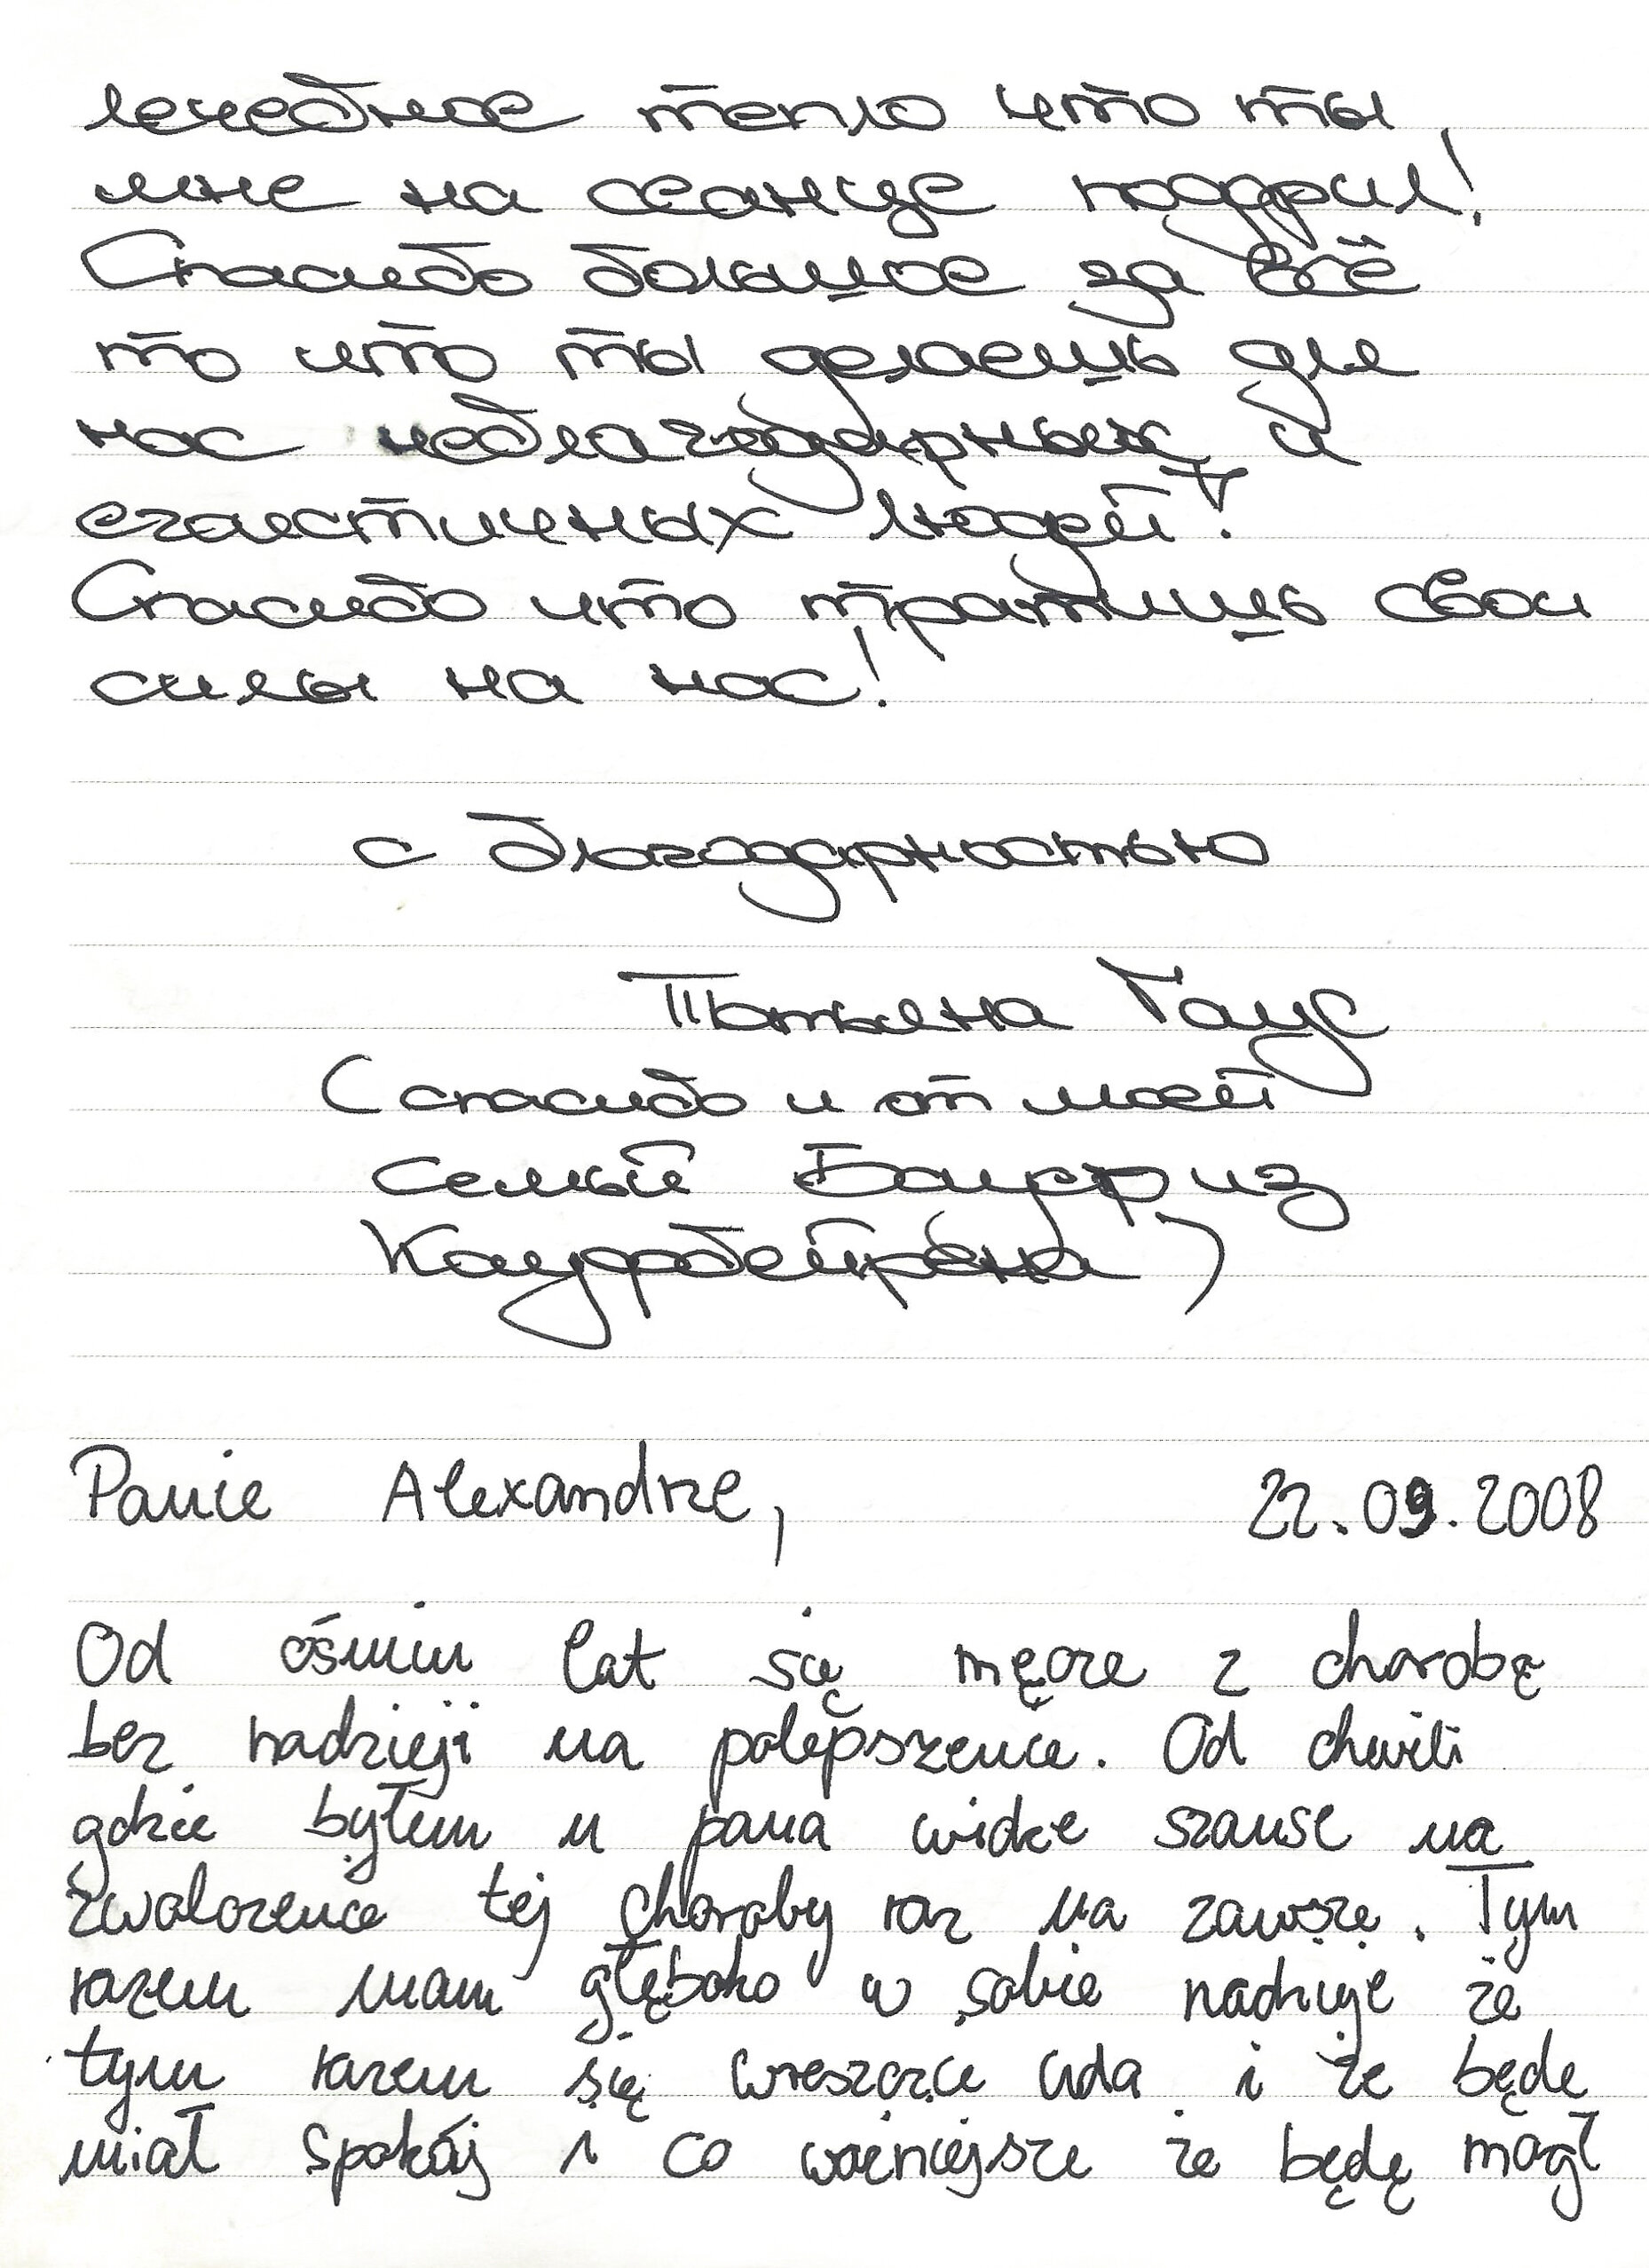 лечебное тепло что ты
мне на сеанце подрил!
Спасибо большое за всё
то что ты делаешь для
нас неблагодарных и
егаистичных людей!
Спасибо что тратишь свои
силы на нас!
с благодарностью
Татьяна Гаус
(спасибо и от моей
семьй из
)
Panie Alexandrze,
22.09.2008
Od ośmiu lat się męcze z chorobą
bez nadzieji na polepszenie. Od chwili
gdzie byłem u pana widze szanse na
zwalczenie tej choroby raz na zawsze. Tym
razem mam głęboko w sobie nadzieje że
tym razem się wreszczcie uda i że będe
miał spokój i co ważniejsze że będę mógł